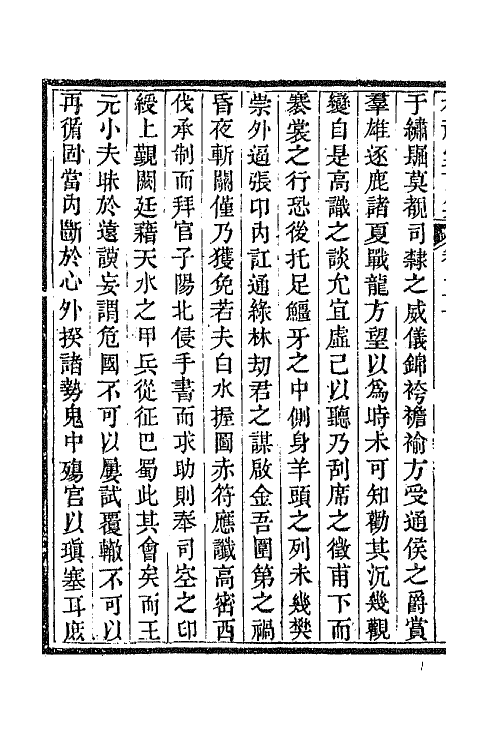 于繡𧞫莫覩司隸之威儀錦袴襜褕方受通侯之爵賞
羣雄逐鹿諸夏戰龍方望以爲時未可知勸其沉幾觀
變自是高識之談尤宜虛己以聽乃刮席之徵甫下而
褰裳之行恐後托足鱷牙之中側身羊頭之列未幾樊
崇外逼張卬內訌通綠林刧君之謀啟金吾圍第之禍
昏夜斬關僅乃獲免若夫白水握圖赤符應讖高密西
伐承制而拜官子陽北侵手書而求助則奉司空之印
綬上覲闕廷藉天水之甲兵從征巴蜀此其會矣而王
元小夫昧於遠謨妄謂危國不可以屢試覆轍不可以
再循囙當內斷於心外揆諸勢鬼中殤宮以瑱塞耳庶